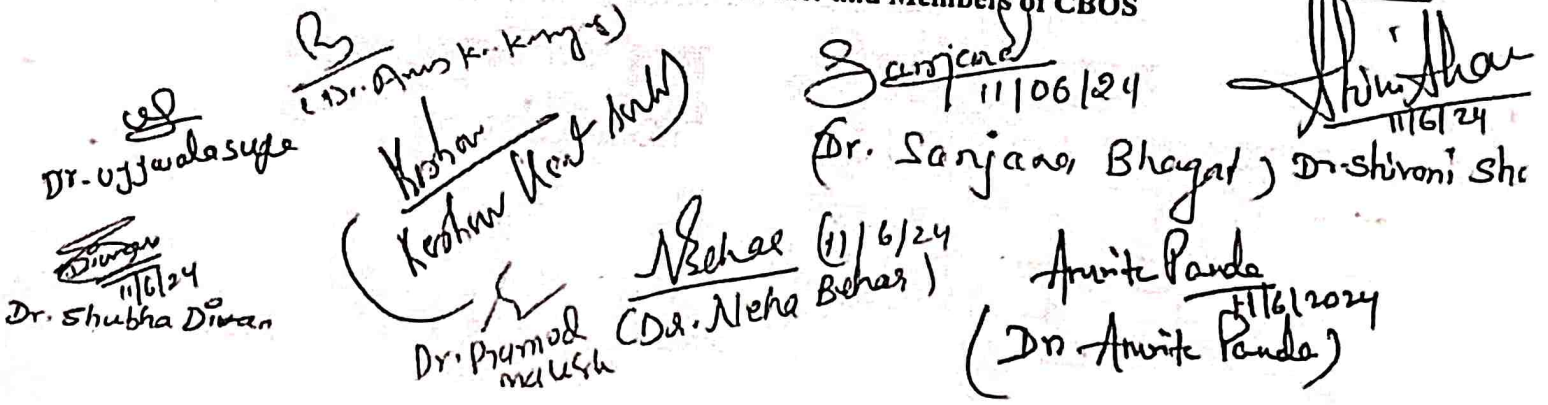 and Members of CBOS
(Dr. Anus K.
Dr. Ujjwala Supe
Keshav
(Keshav Kant
Sanjana
11/06/24
(Dr. Sanjana Bhagat)
11/6/24
Dr. Shivani Sha
11/6/24
Dr. Shubha Diwan
Dr. Pramod
NBehar
11/6/24
(Dr. Neha Behar)
Amrita Panda
11/6/2024
(Dr. Amrita Panda)